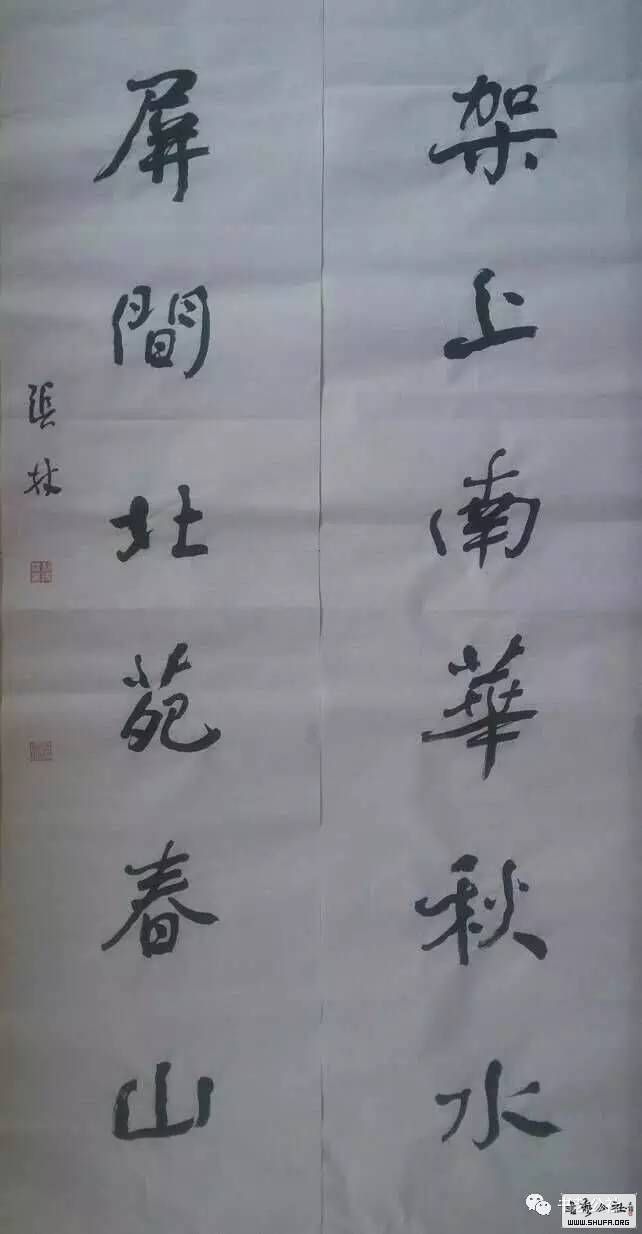 架上南華秋水
屏間北苑春山
張林
WWW.SHUFA.ORG